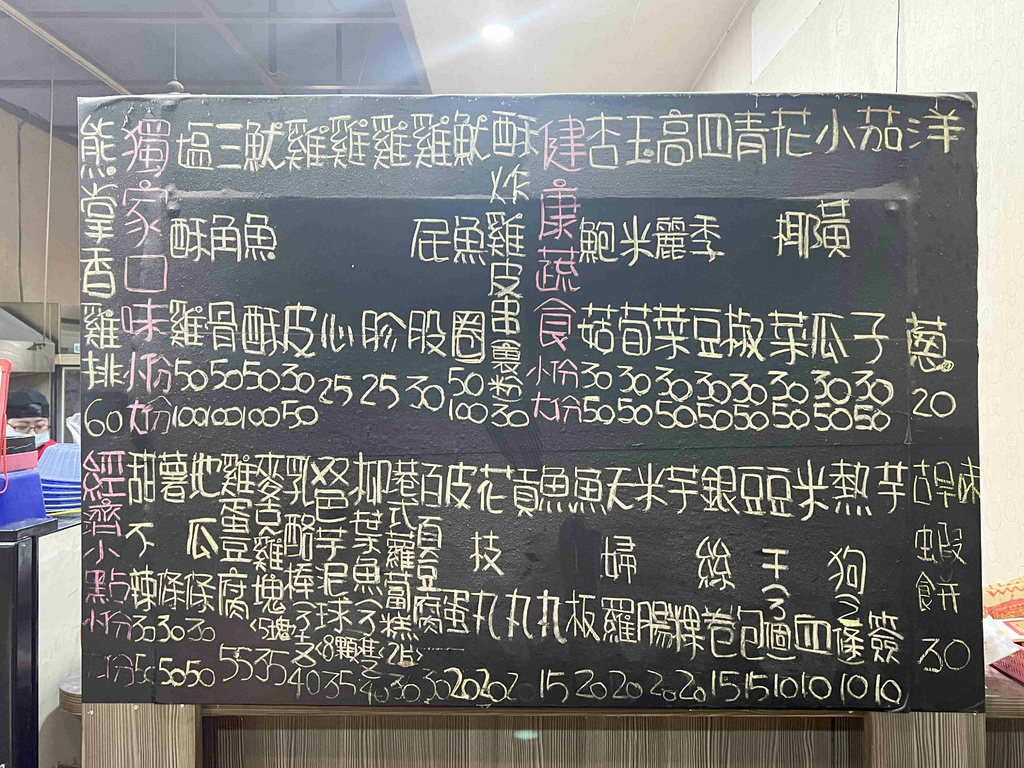 熊掌香雞排 60
獨家口味 小份 大份
塩酥雞 50 100
三角骨 50 100
魷魚酥 50 100
雞皮 30 50
雞心 25
雞胗 25
雞屁股 30
魷魚圈 50 100
酥炸雞皮串 30
健康蔬食 小份 大份
杏鮑菇 30 50
玉米筍 30 50
高麗菜 30 50
四季豆 30 50
青椒 30 50
花椰菜 30 50
小黃瓜 30 50
茄子 30 50
洋蔥 20
經濟小點 小份 大份
甜不辣 30 50
薯條 30 50
地瓜條 30 50
雞蛋豆腐 55
麥克雞塊 <5塊 35
乳酪棒 3支 40
芋泥球 <8顆 35
柳葉魚 3隻 40
港式蘿蔔糕 <2片 30
百頁豆腐 30
皮蛋 20
花枝丸 20
貢丸
魚丸 15
魚板 20
天婦羅 20
米腸 20
芋粿 20
銀絲卷 15
豆包 15
豆干 3個 10
米血 10
熱狗 2條 10
芋簽 10
古早味蝦餅 30